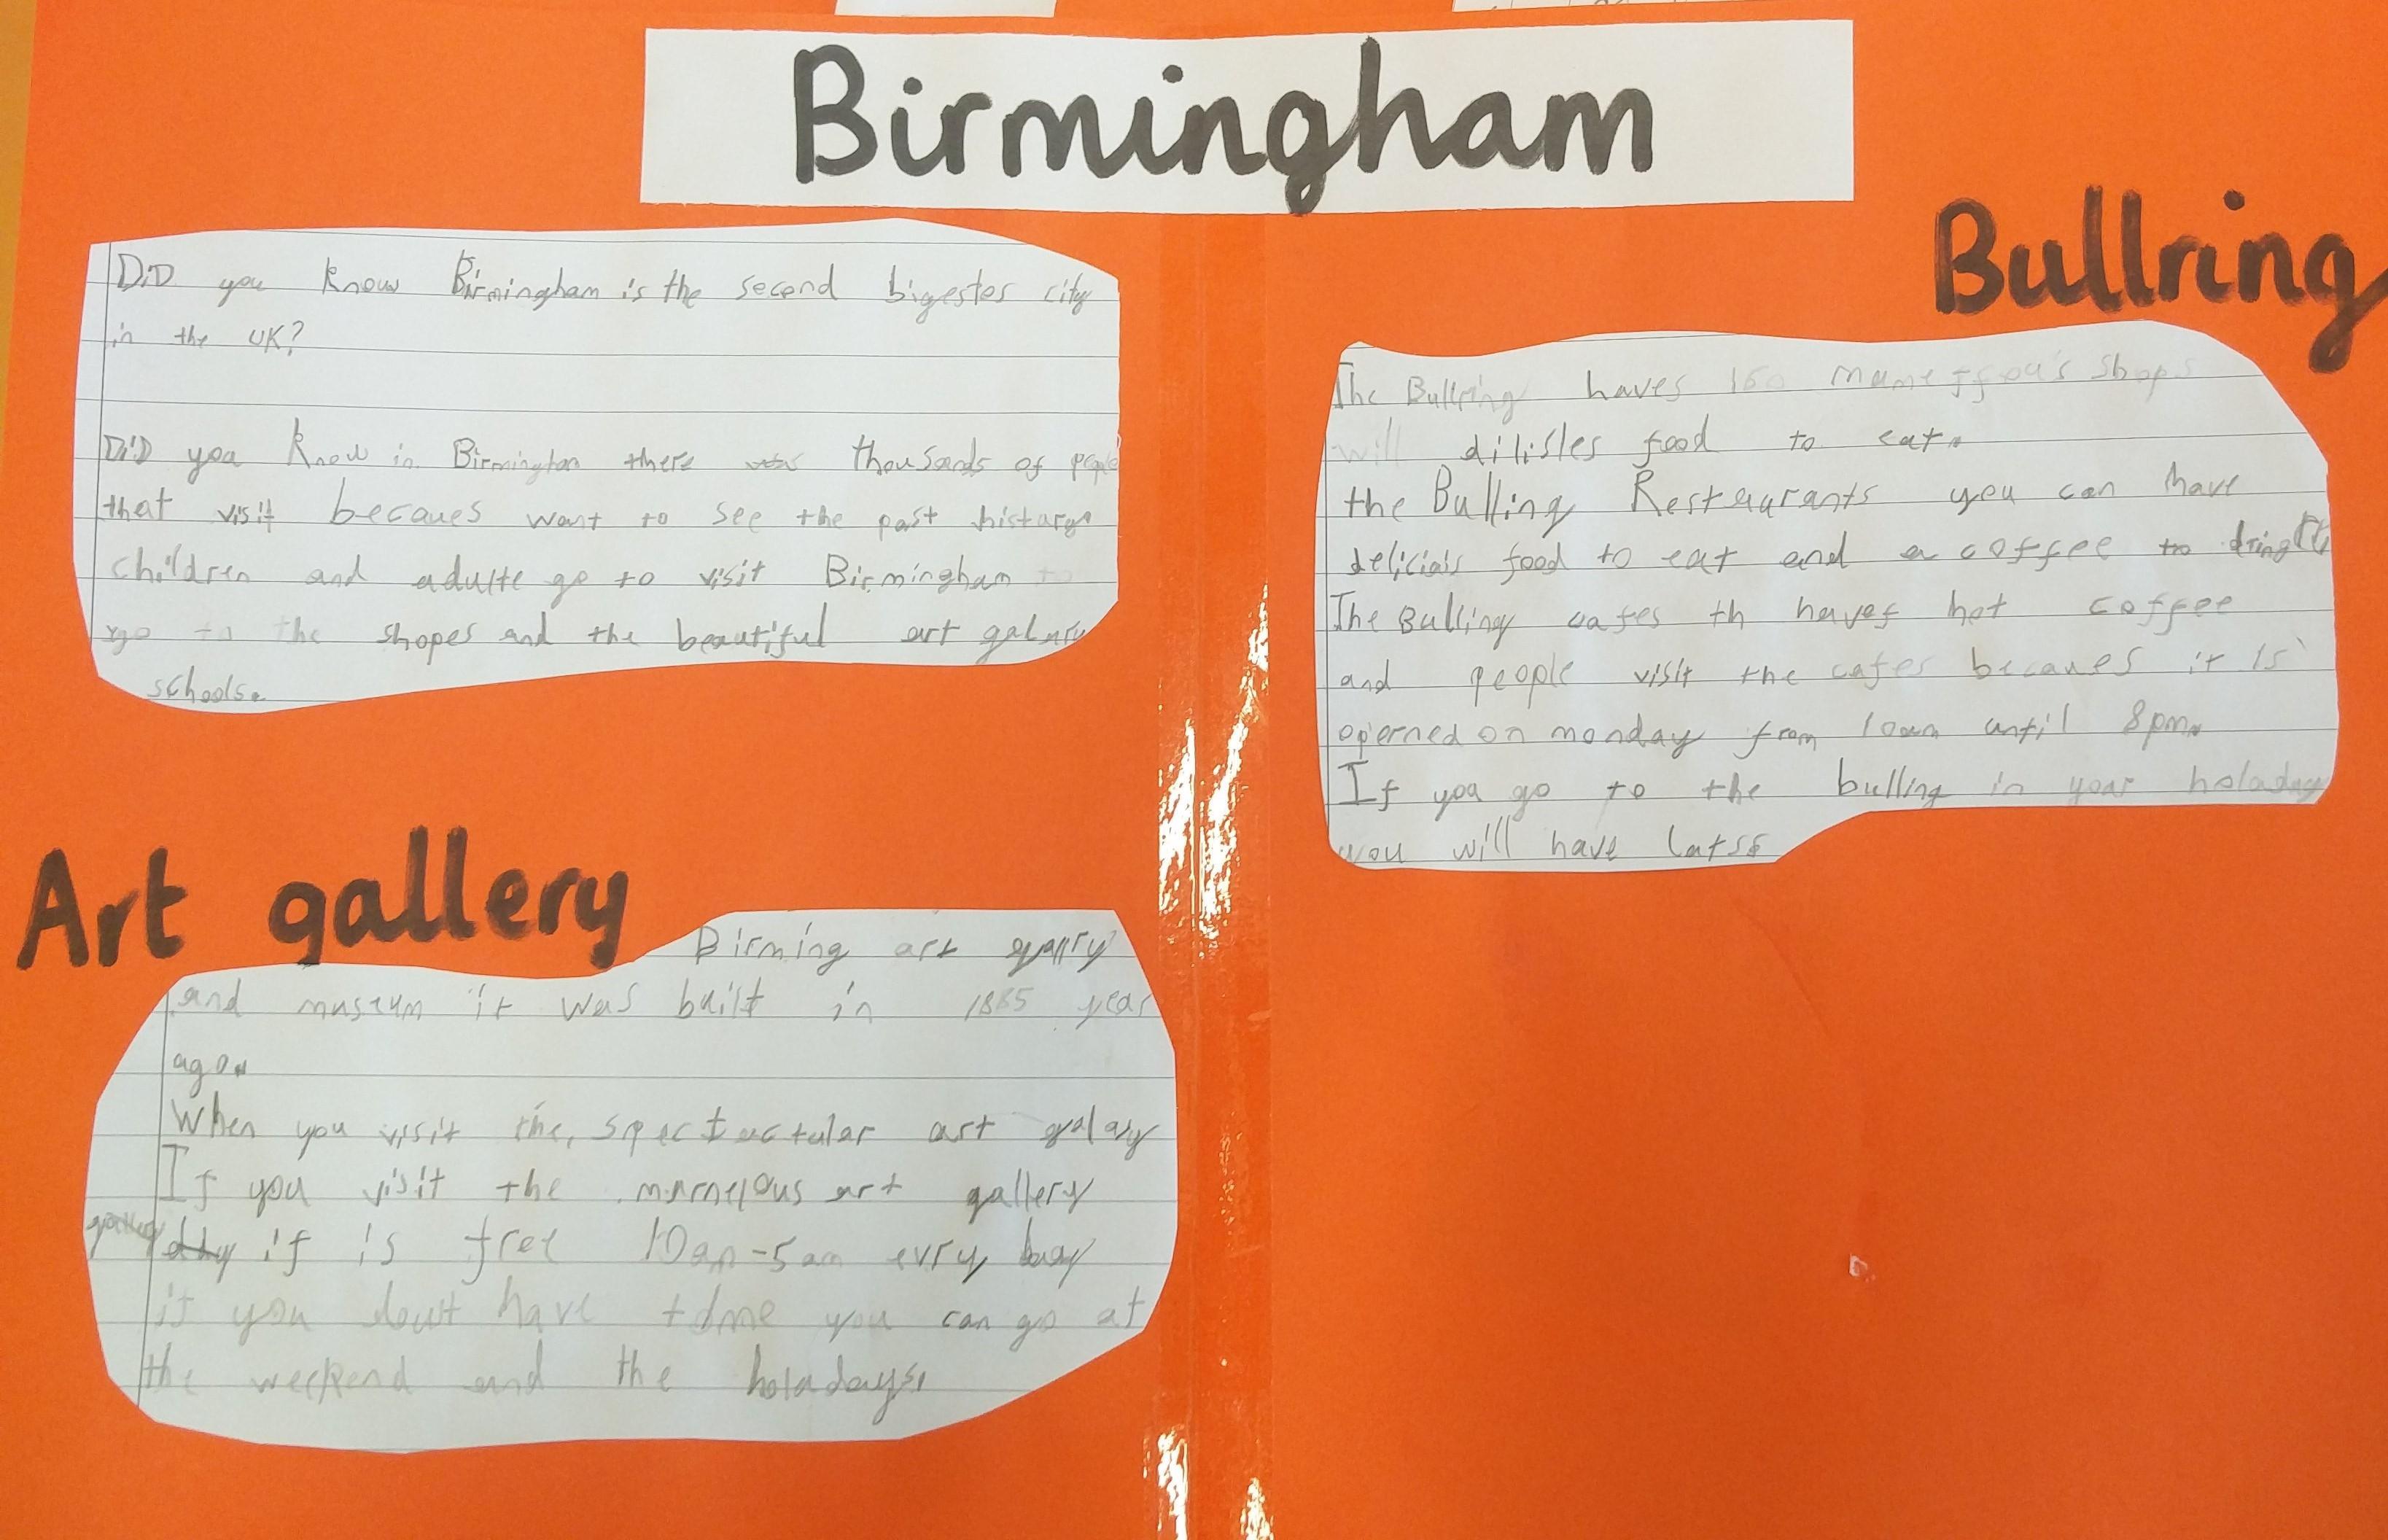 Birmingham
DiD you know Birmingham is the second bigestes city
in the UK?
DiD you know in Birmington there thousands of people
that visit becaues want to see the past history
children and adulte go to visit Birmingham to
go to the shopes and the beautiful art galary
schools.
Bullring
The Bullring haves 160 shops
will dilisles food to eat.
the Bulling Restaurants you can have
delicials food to eat and a coffee to dringk
The Bulling cafes th haves hot coffee
and people visit the cafes becaues it is
operned on monday from 10am until 8pm.
If you go to the bulling in your holaday
you will have lotss
Art gallery
Birming art gallry
and museum it was built in 1885 year
ago.
When you visit the, spectactular art galary
If you visit the marnelous art gallery
gallery if is free 10am-5am evry bay
if you dout have time you can go at
the weekend and the holadays.